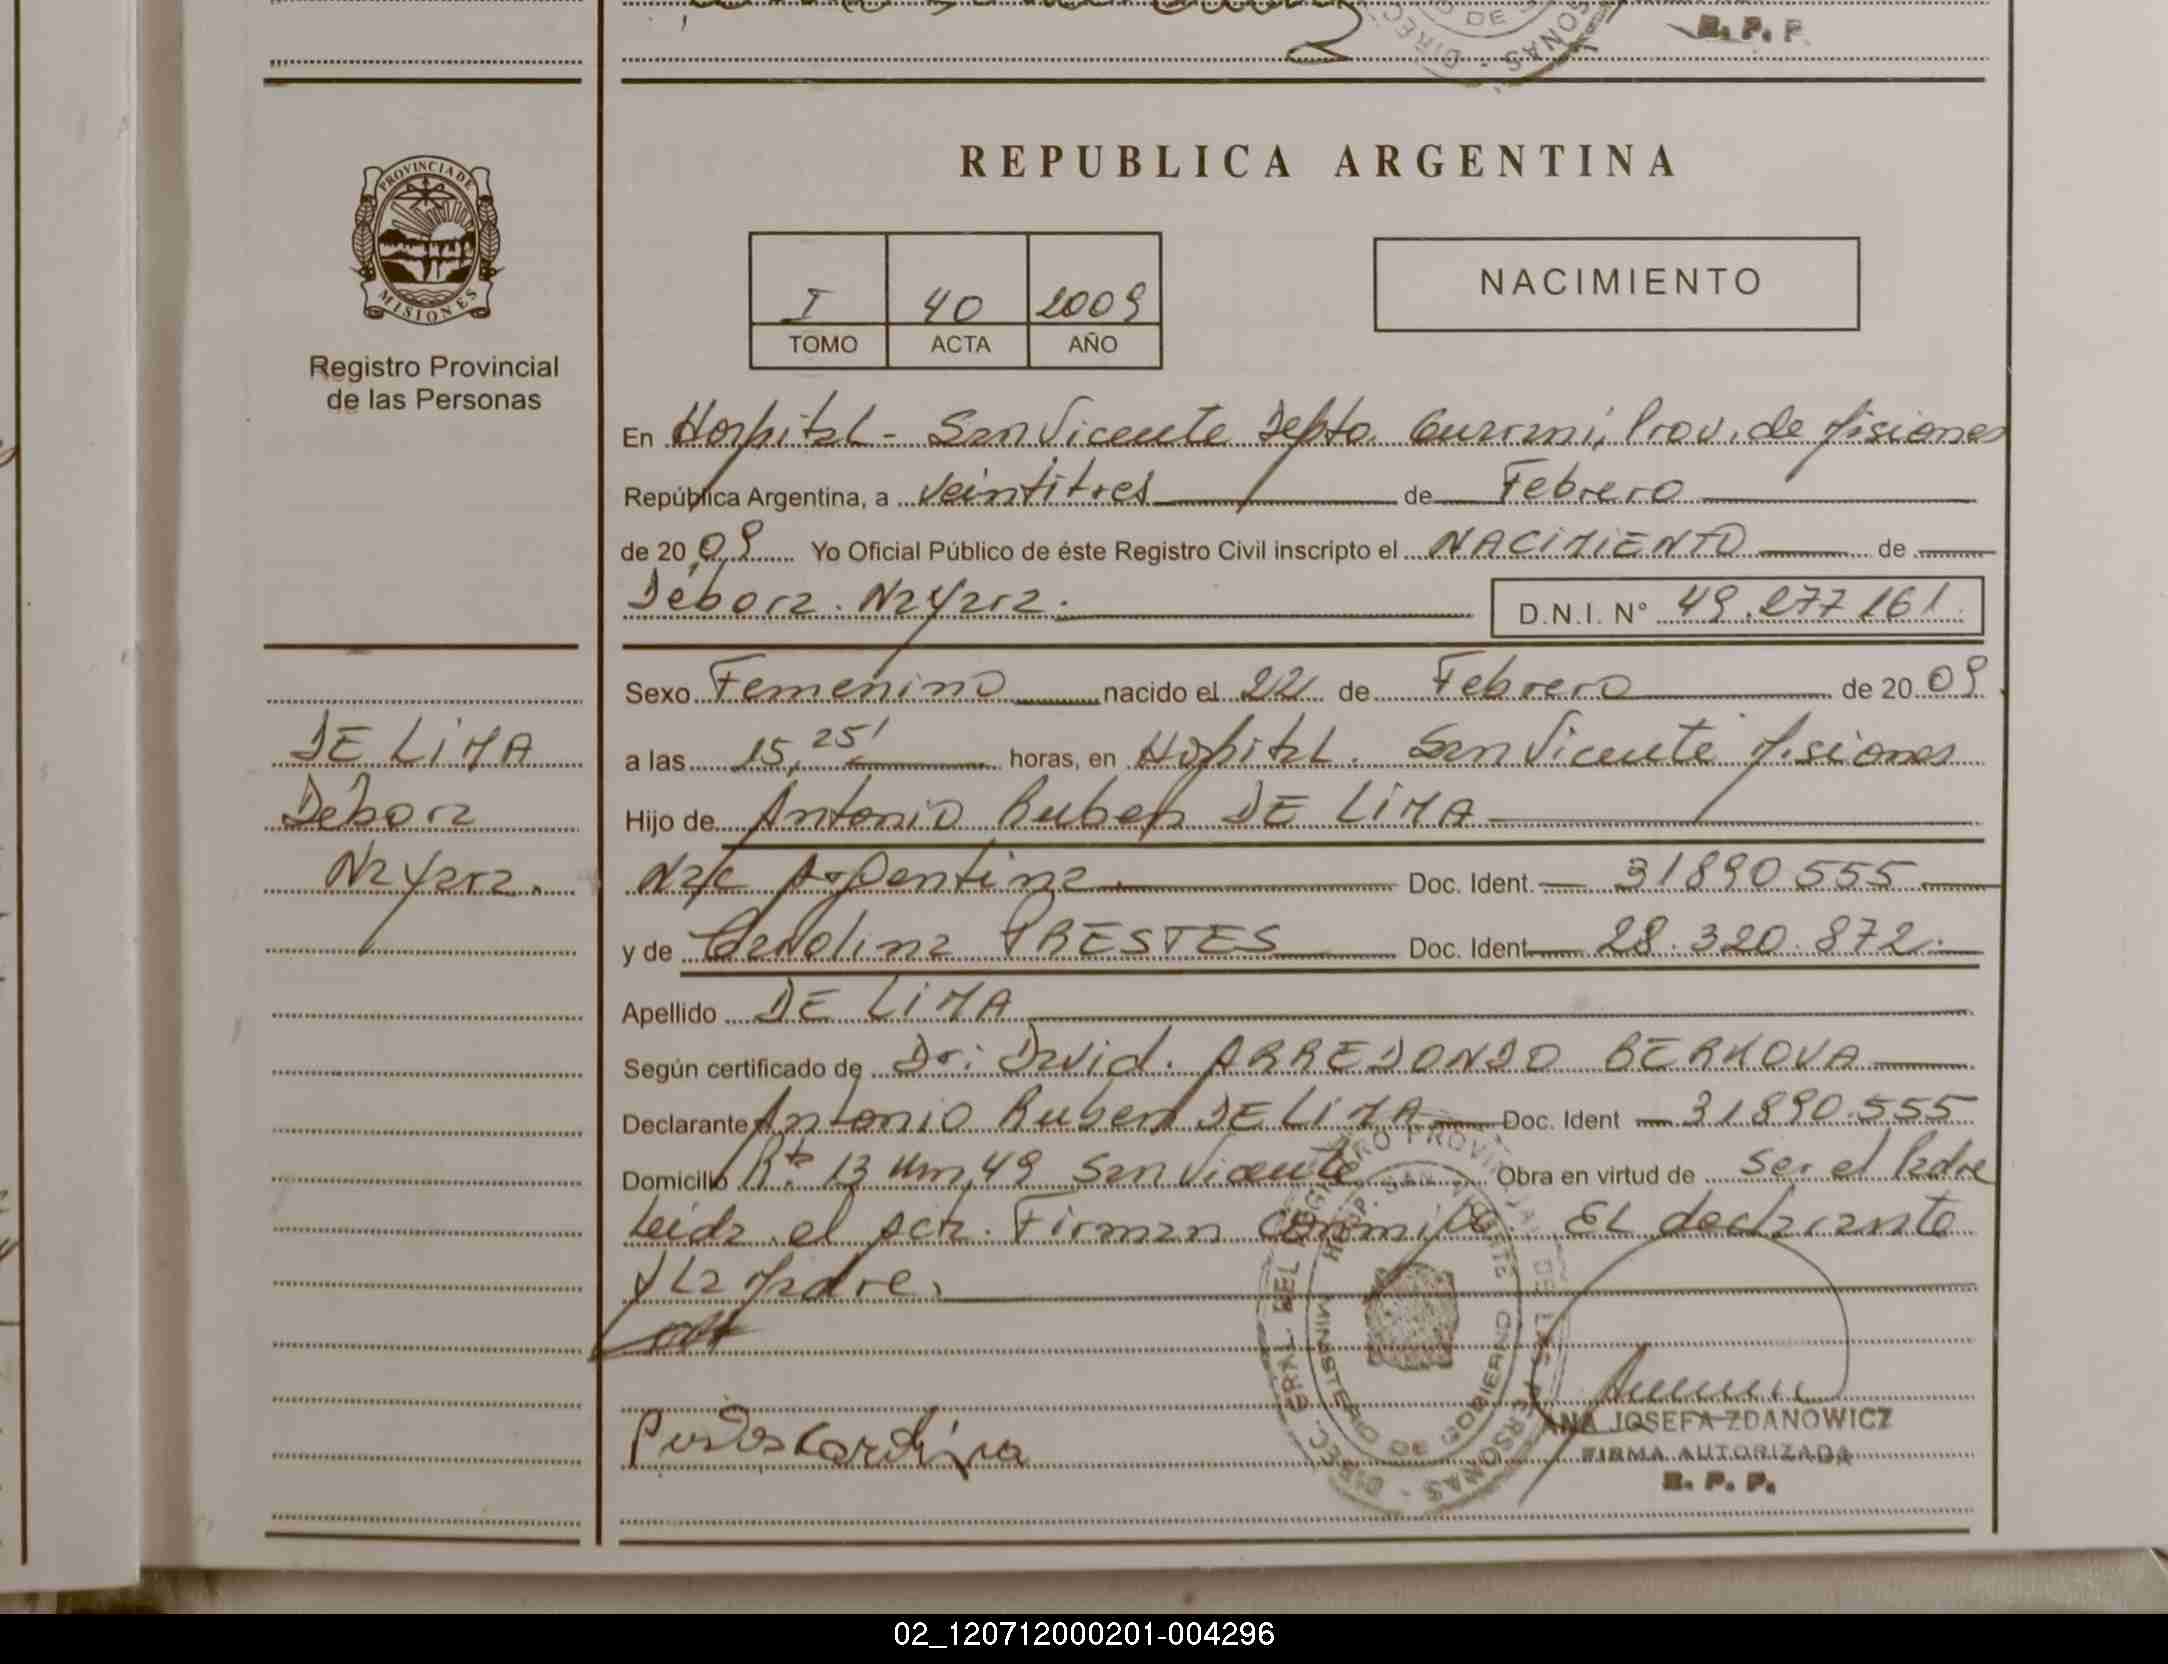 PROVINCIA DE
MISIONES
Registro Provincial
de las Personas
DE LIMA
Débora
Nayara.
R. P. P.
REPUBLICA ARGENTINA
I 40 2009
TOMO ACTA AÑO
NACIMIENTO
En Hospital - San Vicente Depto. Guarani, Prov. de Misiones
República Argentina, a veintitres de Febrero
de 2009 Yo Oficial Público de éste Registro Civil inscripto el NACIMIENTO de
Débora. Nayara. D.N.I. N° 49.277161.
Sexo Femenino nacido el 22 de Febrero de 2009.
a las 15,25' horas, en Hospital. San Vicente Misiones
Hijo de Antonio Ruben DE LIMA
Nac Argentina. Doc. Ident. 31890555
y de Carolina PRESTES Doc. Ident 28.320.872.
Apellido DE LIMA
Según certificado de Dr: David. ARREDONDO
Declarante Antonio Ruben DE LIMA Doc. Ident 31890.555
Domicilio Rta 13 Km 49 San Vicente Obra en virtud de Ser el Padre
Leida el acta. Firman conmigo EL declarante
y La Madre.
DIREC. GRAL. DEL REGISTRO PROVINCIAL DE LAS PERSONAS
HOSP. SAN VICENTE
MINISTERIO DE GOBIERNO
ANA JOSEFA ZDANOWICZ
FIRMA AUTORIZADA
R. P. P.
02_120712000201-004296